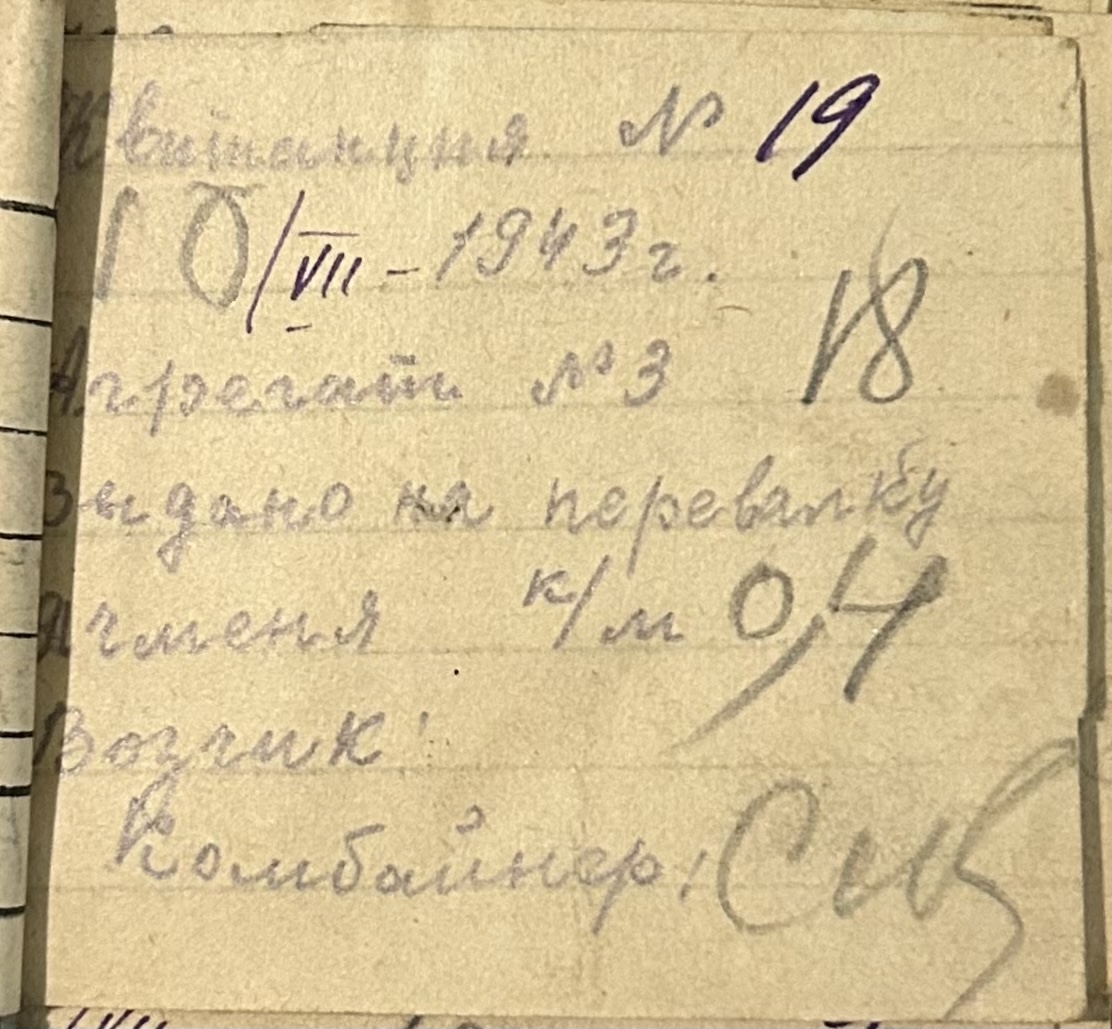 Квитанция № 19
10/VII - 1943 г.
18
Агрегат № 3
Выдано на перевалку
Ячменя к/м 0,4
Возчик:
Комбайнер: